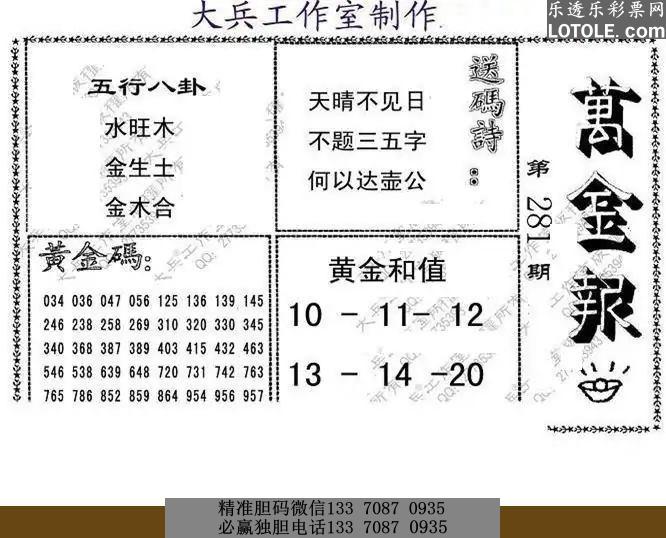 大兵工作室制作.
乐透乐彩票网
LOTOLE.COM
五行八卦
水旺木
金生土
金木合
送碼詩:
天晴不见日
不题三五字
何以达壶公
萬金報
第281期
黃金碼:
034 036 047 056 125 136 139 145
246 238 258 269 310 320 330 345
340 368 387 389 403 415 432 463
546 538 639 648 720 731 742 763
765 786 852 859 864 954 956 957
黄金和值
10 - 11- 12
13 - 14 -20
精准胆码微信133 7087 0935
必赢独胆电话133 7087 0935